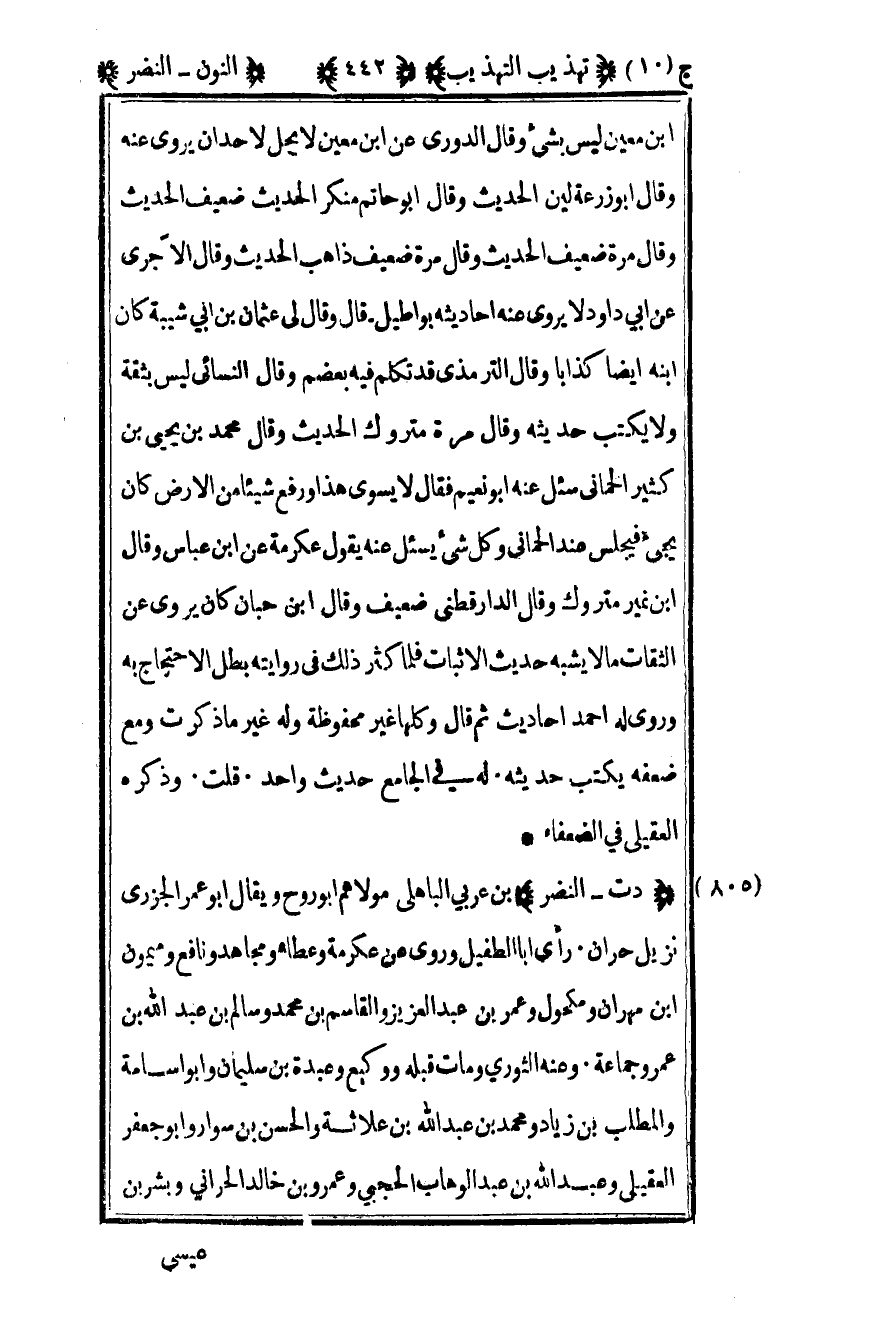 ج (١٠) ﴿ تهذيب التهذيب ﴾ ﴿ ٤٤٢ ﴾ ﴿ النون ـ النضر ﴾
ابن معين ليس بشئ وقال الدورى عن ابن معين لا يحل لاحد ان يروى عنه
وقال ابو زرعة لين الحديث وقال ابو حاتم منكر الحديث ضعيف الحديث
وقال مرة ضعيف الحديث وقال مرة ضعيف ذاهب الحديث وقال الآجرى
عن ابي داود لا يروى عنه احاديثه بواطيل ـ قال وقال لى عثمان بن ابي شيبة كان
ابنه ايضا كذابا وقال الترمذى قد تكلم فيه بعضم وقال النسائى ليس بثقة
ولا يكتب حديثه وقال مرة متروك الحديث وقال محمد بن يحيى بن
كثير الحمانى سئل عنه ابو نعيم فقال لا يسوى هذا ورفع شيئا من الارض كان
يجىء فيجلس عند الحمانى وكل شئ يسئل عنه يقول عكرمة عن ابن عباس وقال
ابن نمير متروك وقال الدارقطنى ضعيف وقال ابن حبان كان يروى عن
الثقات مالا يشبه حديث الاثبات فلما كثر ذلك فى روايته بطل الاحتجاج به
وروى له احمد احاديث ثم قال وكلها غير محفوظة وله غير ما ذكرت ومع
ضعفه يكتب حديثه . له في الجامع حديث واحد . قلت . وذكره
العقيلى في الضعفاء •
(٨٠٥) ﴿ دت ـ النضر ﴾ بن عربي الباهلى مولاهم ابو روح ويقال ابو عمر الجزرى
نزيل حران . رأى ابا الطفيل وروى عن عكرمة وعطاء ومجاهد ونافع وميمون
ابن مهران ومكحول وعمر بن عبد العزيز والقاسم بن محمد وسالم بن عبد الله بن
عمر وجماعة . وعنه الثوري ومات قبله ووكيع وعبدة بن سليمان وابو اسامة
والمطلب بن زياد ومحمد بن عبد الله بن علاثة والحسن بن سوار وابو جعفر
العقيلى وعبد الله بن عبد الوهاب الحجبي وعمرو بن خالد الحراني وبشر بن
عيسي